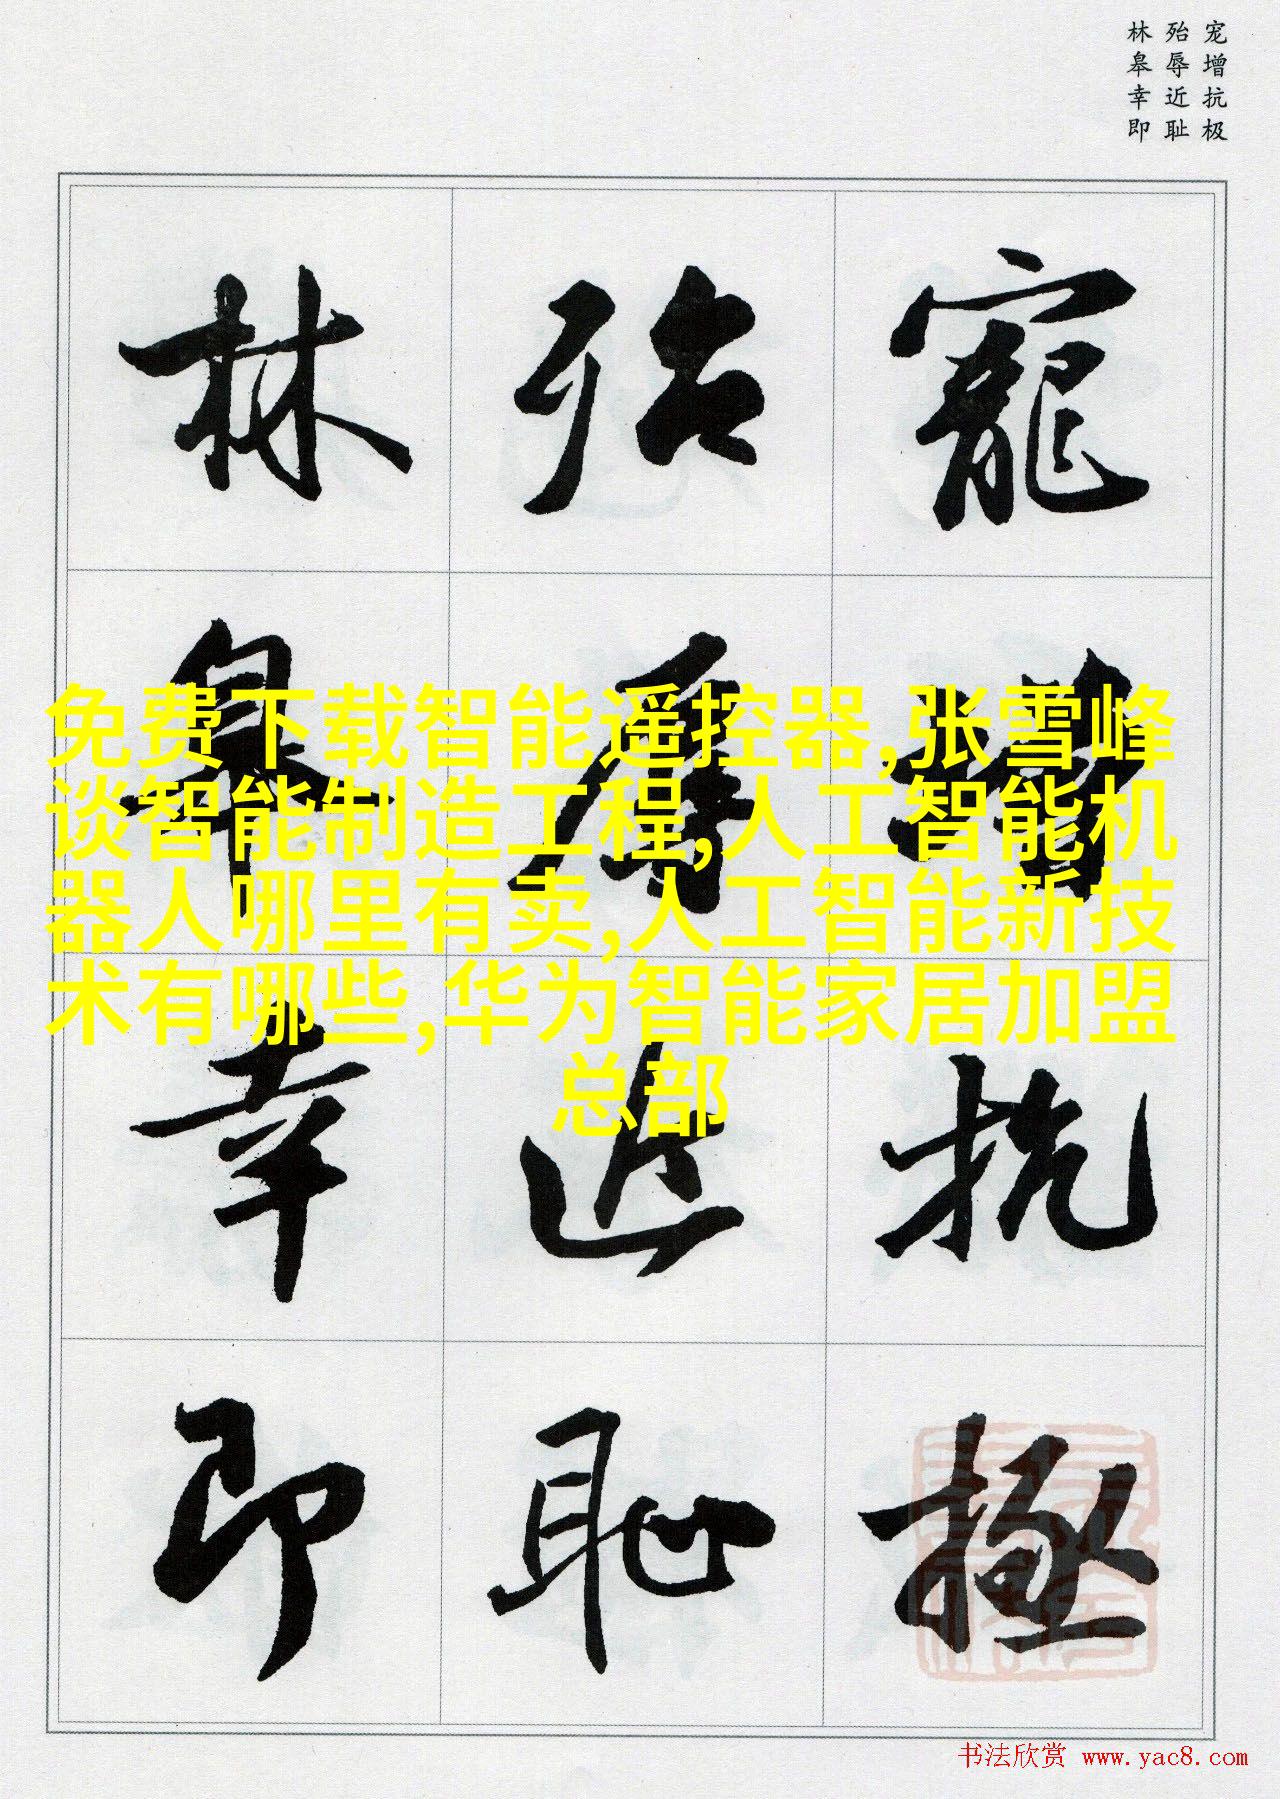 宠增抗极
殆辱近耻
林皋幸即
寵增抗極
殆辱近恥
林皋幸即
免费下载智能遥控器,张雪峰
谈智能制造工程,人工智能机
器人哪里有卖,人工智能新技
术有哪些,华为智能家居加盟
总部
书法欣赏 www.yac8.com